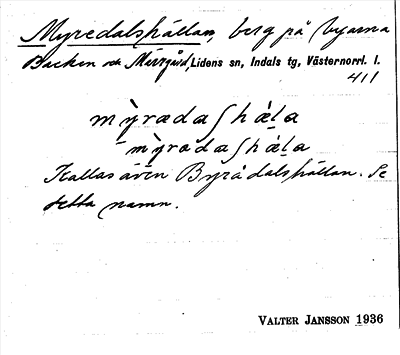 Myredalshällan, berg på byarna
Backen och Mörrgård, Lidens sn, Indals tg, Västernorrl. l.
411
m y̆̀rædaʃhàļa
m y̆̀rådaʃhàļa
Kallas även Byrådalshällan. Se
detta namn.
VALTER JANSSON 1936